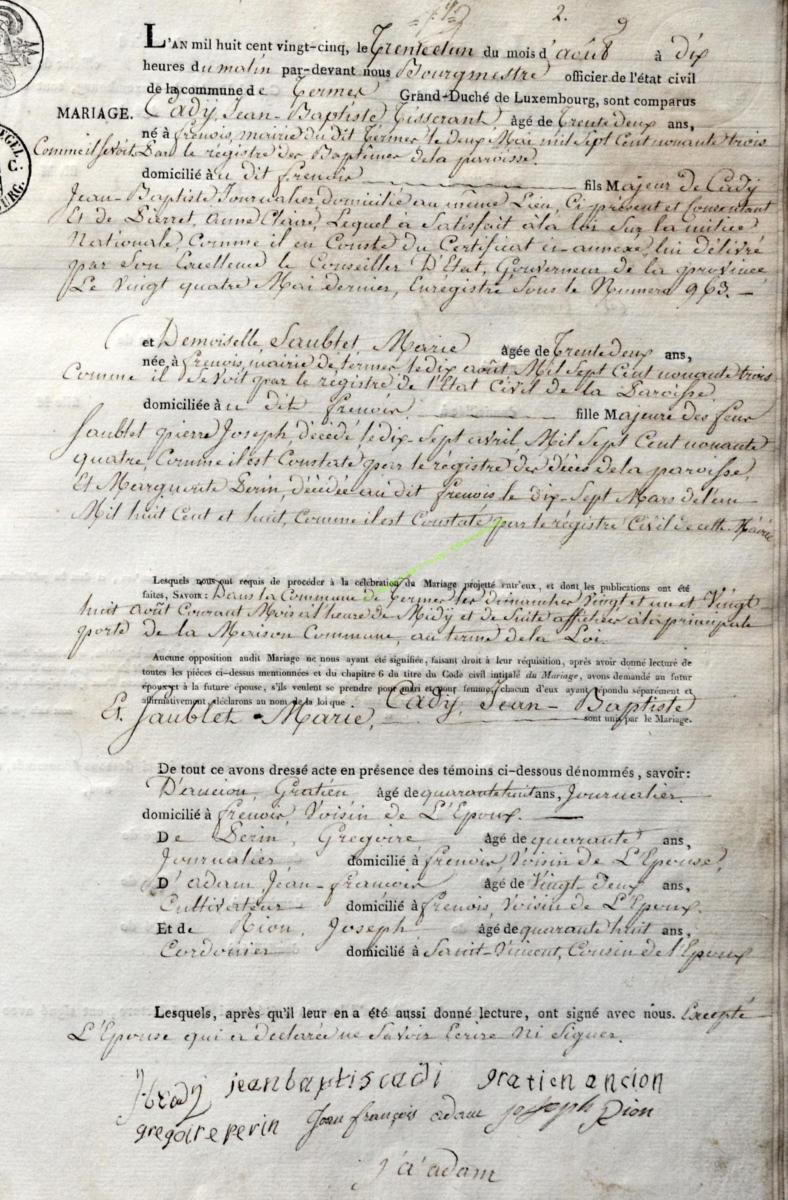 2. 9
L'AN mil huit cent vingt-cinq, le Trente et un du mois d'août à dix
heures du matin par-devant nous Bourgmestre officier de l'état civil
de la commune de Termes Grand-Duché de Luxembourg, sont comparus
MARIAGE. Cady, Jean-Baptiste Tisserant âgé de Trente deux ans,
né à frenois, mairie du dit Termes le deux Mai mil Sept Cent nonante trois
Comme il se voit Dans le registre des Baptêmes de la paroisse.
domicilié à u dit frenois fils Majeur de Cady
Jean-Baptiste Journalier domicilié au même Lieu, Ci présent et Consentant
Et de Pierret, Anne Claire, Lequel à Satisfait à la loi Sur la milice
Nationale, Comme il en Conste du Certificat ci-annexé, lui délivré
par Son Excellence le Conseiller D'Etat, Gouverneur de la province
Le Vingt quatre Mai dernier, Enregistré Sous le Numero 963.
et Demoiselle Saublet Marie âgée de Trente deux ans,
née à frenois mairie de termes le dix août Mil Sept Cent nonante trois
Comme il se voit par le registre de l'Etat Civil de la Paroisse
domiciliée à u dit frenois. fille Majeure des feux
Saublet pierre Joseph, décédé le dix-Sept avril Mil Sept Cent nonante
quatre, Comme il est Constaté par le régistre des décès de la paroisse,
Et Marguerite Perin, décédée au dit frenois le dix-Sept Mars de l'an
Mil huit Cent et huit, Comme il est Constaté par le régistre Civil de cette Mairie
Lesquels nous ont requis de procéder à la célébration du Mariage projetté entr'eux, et dont les publications ont été
faites, Savoir: Dans la Commune de Termes les dimanches Vingt et un et Vingt
huit août Courant Mois à l'heure de Midy et de Suite affichée à la principale
porte de la Maison Commune, au terme de la Loi.
Aucune opposition audit Mariage ne nous ayant été signifiée, faisant droit à leur réquisition, après avoir donné lecture de
toutes les pièces ci-dessus mentionnées et du chapitre 6 du titre du Code civil intitulé du Mariage, avons demandé au futur
époux et à la future épouse, s'ils veulent se prendre pour mari et pour femme, chacun d'eux ayant répondu séparément et
affirmativement, déclarons au nom de la loi que Cady, Jean-Baptiste
Et Saublet Marie, sont unis par le Mariage.
De tout ce avons dressé acte en présence des témoins ci-dessous dénommés, savoir:
D'ancion, Gratien âgé de quarante huit ans, Journalier
domicilié à frenois, Voisin de L'Epoux.
De Perin, Gregoire âgé de quarante ans,
Journalier domicilié à frenois, Voisin de L'Epouse,
D'adam, Jean-francois âgé de Vingt-deux ans,
Cultivateur domicilié à frenois, Voisin de L'Epoux.
Et de Rion, Joseph âgé de quarante huit ans,
Cordonier domicilié à Saint-Vincent, Cousin de l'Epoux
Lesquels, après qu'il leur en a été aussi donné lecture, ont signé avec nous. Excepté
L'Epouse qui a declarée ne Savoir Ecrire Ni Signer.
jean baptis cadi gratien ancion
gregoire perin Jean françois adam joseph Rion
J a adam